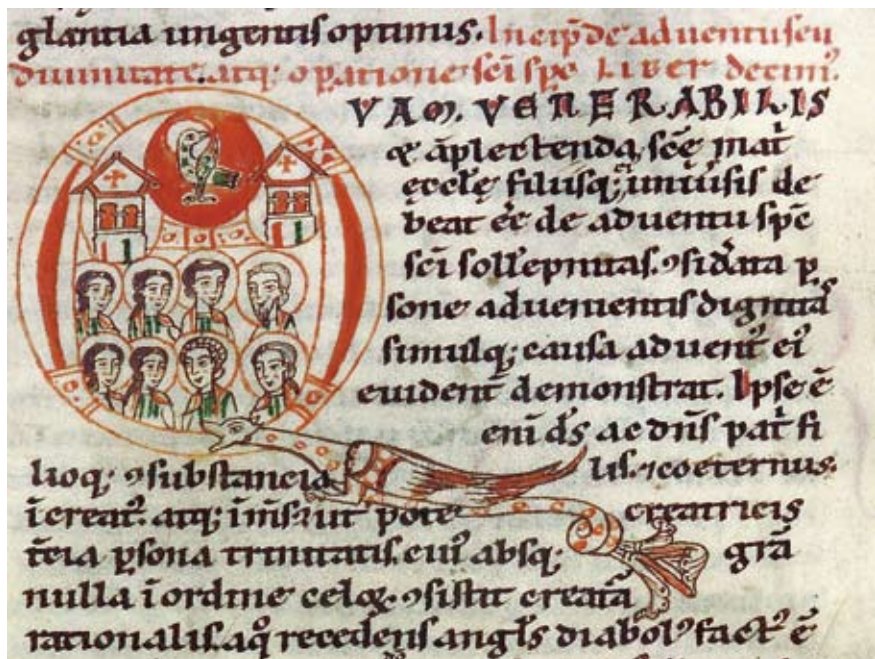 glantia ungentis optimus. Incip̄ de adventu seu
divinitate. atq; oꝑatione sc̄i sp̄c LIBER decim᷒.
VAM. VENERABILIS
& āplectenda, sc̄ę mat̄
ęccl̄ę filiisq; univ̄sis de
beat ēē de adventu sp̄c
sc̄i sollēpnitas. ꝯsid̄ata ꝑ
sone advenientis dignitas
simulq; causa advent᷒ ei᷒
evident̄ demonstrat. Ipse ē
eni d̄s ac dn̄s pat̄ fi
lioq; ꝯsubstancia lis. ⁊ coeternus.
īcreat᷒. atq; īm̄s. ut pote creatricis
t̄cia ꝑsona trinitatis. cui᷒ absq; grā
nulla ī ordine celoꝝ ꝯsistit creatā
rationalis. a q̊ recedens angl̄s diabol᷒ fact᷒ ē